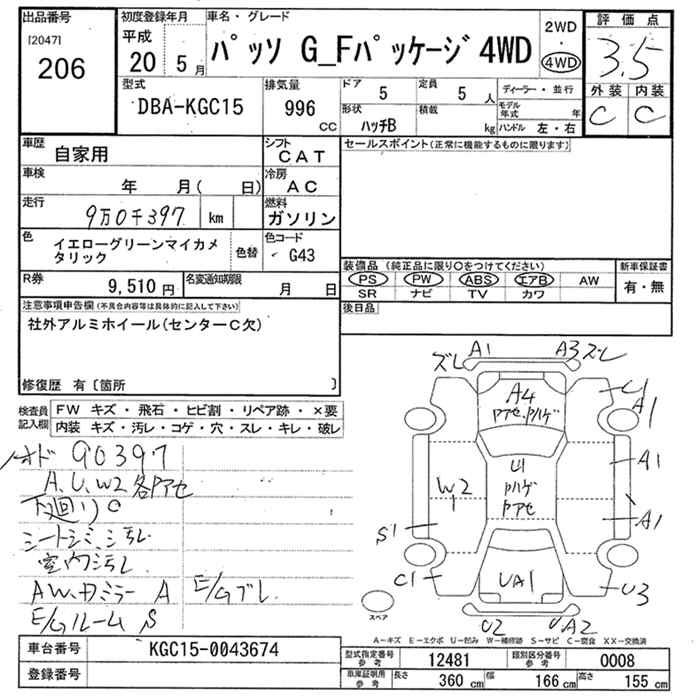 出品番号
[2047]
206
初度登録年月
平成
20 5月
車名・グレード
パッソ G_Fパッケージ 4WD
2WD
・
4WD
評価点
3.5
外装 内装
C C
型式
DBA-KGC15
排気量
996
CC
ドア
5
定員
5人
形状
ハッチB
積載
kg
ディーラー・並行
モデル年式 年
ハンドル 左・右
車歴
自家用
シフト
CAT
車検
年 月( 日)
冷房
AC
走行
9万0千397 km
燃料
ガソリン
色
イエローグリーンマイカメタリック
色替
色コード
G43
R券
9,510円
名変通知期限
月 日
セールスポイント(正常に機能するものに限ります)
装備品 (純正品に限り○をつけてください)
PS PW ABS エアB AW
SR ナビ TV カワ
新車保証書
有・無
後日品
注意事項申告欄(不具合内容等は具体的に記入して下さい)
社外アルミホイール(センターC欠)
修復歴 有〔箇所 〕
検査員記入欄
FW キズ・飛石・ヒビ割・リペア跡・×要
内装 キズ・汚レ・コゲ・穴・スレ・キレ・破レ
オド 90397
A.U.W2 各アセ
下廻り
シートシミ、汚レ
室内汚レ
AW.ガミラー A E/Gブレ
E/Gルーム S
ズレ A1 A3 ズレ
A4
U1 A1
U1
ハゲ
アセ
W2
A1
A1
S1
C1
UA1
U3
U2 UA2
スペア
A-キズ E-エクボ U-凹み W-補修跡 S-サビ C-腐食 XX-交換済
車台番号
KGC15-0043674
登録番号
型式指定番号 参考
12481
類別区分番号 参考
0008
車庫証明用 参考
長さ 360 cm 幅 166 cm 高さ 155 cm